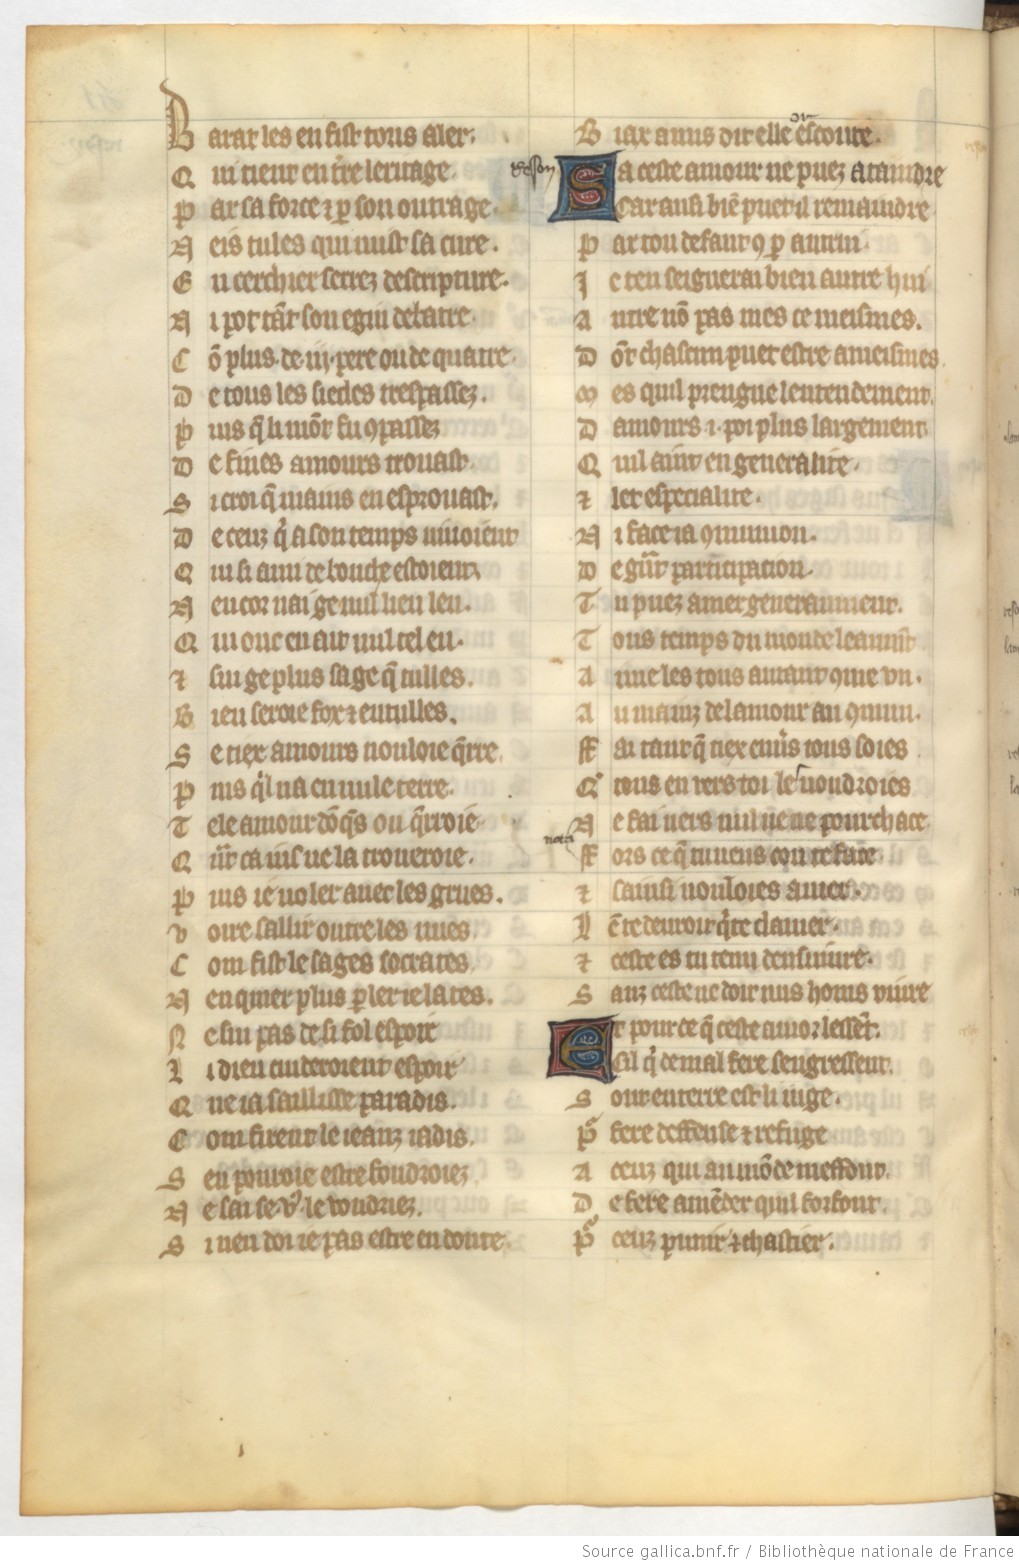 Barat les en fist tous aler.
Qui tient en t̃re leritage.
Par sa force ⁊ ꝑ son outrage.
Neis tules qui mist sa cure.
En cerchier secrez descripture.
Ni pot tãt son egin debatre.
Cõ plus de .iij. xere ou de quatre.
De tous les siecles trespassez.
Puis q̃ li mõt fu ꝯpassez
De fines amours trouast.
Si croi q̃ mains en esprouast.
De ceuz q̃ a son temps uiuoient
Qui si ami de bouche estoient
Nencor nai ge nul lieu leu.
Qui onc en ait nul tel eu.
⁊ sui ge plus sage q̃ tulles.
Bien seroie fox ⁊ entulles.
Se tiex amours uouloie q̃rre.
Puis qͥl na en nule terre.
Tele amour dõques ou q̃rroie
Qũt ca ius ne la trouueroie.
Puis ie uoler auec les grues.
Voire sallir outre les nues.
Com fist le sages socrates.
Nen quier plus ꝑler ie la tes.
Ne sui pas de si fol espoir
Li dieu cuideroient espoir
Que ia saillisse paradis.
Com firent le ieanz iadis.
Sen pourroie estre foudroiez
Ne sai se vͦ le voudriez.
Si nen doi ie pas estre en doute.
Biax amis dit elle or escoute.
deson
Sa ceste amour ne puez ataindre
Car ausi biẽ puet il remaindre
Par ton defaut ꝯ ꝑ autrui.
Je ten seignerai bien autre hui
Autre nõ pas mes ce meismes.
Dõt chascun puet estre ameismes.
Mes quil prengne lentendement.
Damours .i. poi plus largement
Quil aint en generalite.
⁊ let especialite.
Ni face ia ꝯmunion.
De gñt participation.
Tu puez amer generaument.
Tous ceuz du monde leaumt̃
Aime les tous autant ꝯme vn.
Au mainz de lamour au ꝯmun.
Fai tant q̃ tiex enuͥs tous soies
Qͥ tous en vers toi les uoudroies
Ne fai vers nul ne ne pourchace
nota
Fors ce q̃ tu veus con te face.
⁊ sainsi uouloies amer.
Len te deuroit qͥte clamer.
⁊ ceste es tu tenu densuiure.
Sanz ceste ne doit nus homs viure
Et pour ce q̃ ceste amor lessẽt.
Cil qͥ de mal fere sengressent.
Sont en terre estabi li iuge.
Pͬ fere deffense ⁊ refuge
A ceuz qui au mõde meffont.
De fere amẽder quil forfont.
Pͬ ceuz punir ⁊ chastier.
Source gallica.bnf.fr / Bibliothèque nationale de France